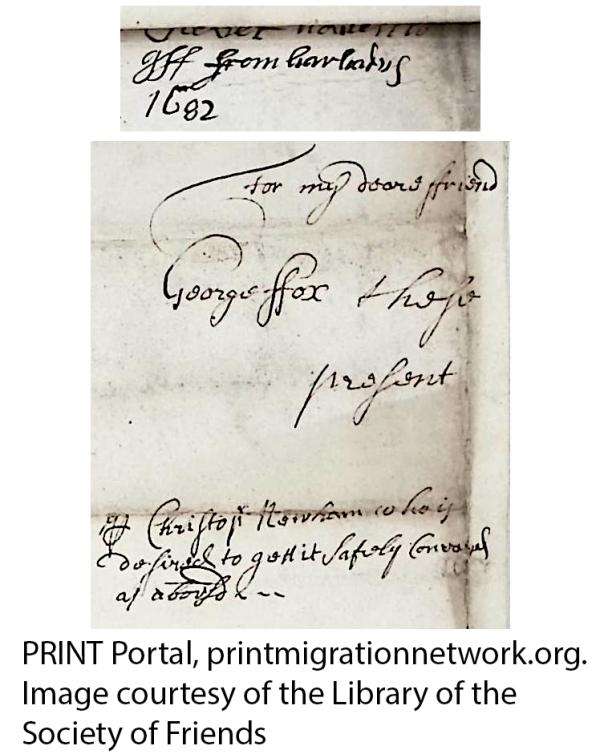 gff from barbadus
1682
for my deare ffriend
George ffox these
present
Christopr Newham who is
desired to gett it Safely Conveyed
as abovesd --
PRINT Portal, printmigrationnetwork.org.
Image courtesy of the Library of the
Society of Friends